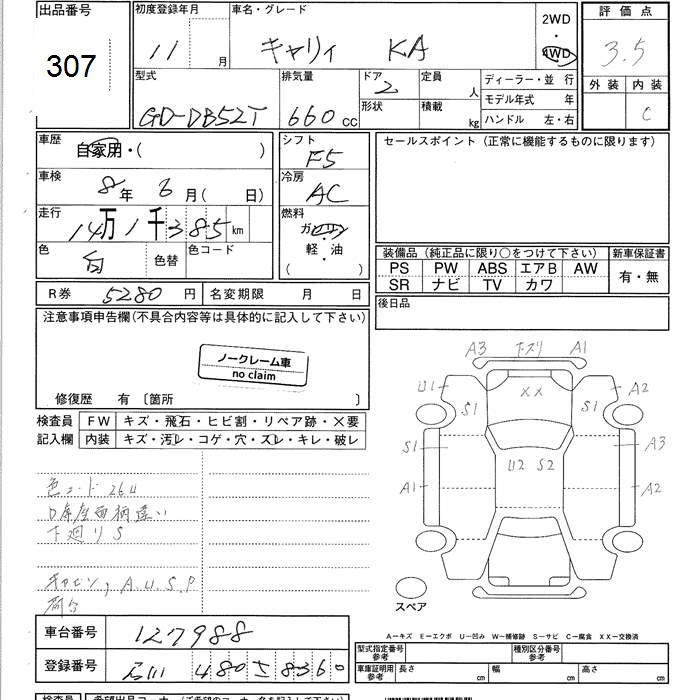 出品番号
307
初度登録年月
11 月
車名・グレード
キャリィ KA
2WD
4WD
評価点
3.5
外装 内装
C
型式
GD-DB52T
排気量
660 CC
ドア
2
形状
定員
人
積載
kg
ディーラー・並行
モデル年式 年
ハンドル 左・右
車歴
自家用・( )
シフト
F5
セールスポイント (正常に機能するものに限ります)
車検
8年 6月( 日)
冷房
AC
走行
14万1千385 km
燃料
ガソリン
・
軽・油
( )
色
白
色替
色コード
装備品 (純正品に限り○をつけて下さい)
新車保証書
PS PW ABS エアB AW
有・無
SR ナビ TV カワ
R券 5280 円
名変期限 月 日
後日品
注意事項申告欄(不具合内容等は具体的に記入して下さい)
ノークレーム車
no claim
修復歴 有 〔箇所 〕
検査員
記入欄
FW キズ・飛石・ヒビ割・リペア跡・×要
内装 キズ・汚レ・コゲ・穴・スレ・キレ・破レ
色コード 26U
D席座面柄違い
下廻りS
キャビン、A.U.S.P
荷台
A3 下スリ A1
U1 S1 XX S1 A2
S1 U2 S2 A3
A1 A2
スペア
A―キズ E―エクボ U―凹み W―補修跡 S―サビ C―腐食 XX―交換済
車台番号 127988
登録番号 石川 480 さ 8360
型式指定番号
参考
種別区分番号
参考
車庫証明用
参考
長さ 幅 高さ
検査員